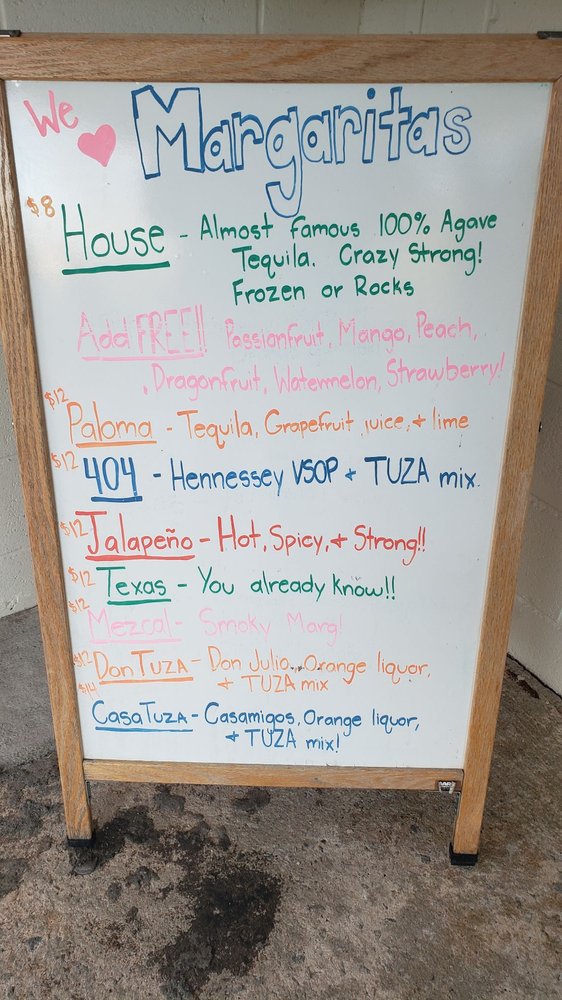 We ♥ Margaritas
$8 House - Almost Famous 100% Agave
Tequila. Crazy Strong!
Frozen or Rocks
Add FREE!! Passionfruit, Mango, Peach,
Dragonfruit, Watermelon, Strawberry!
$12 Paloma - Tequila, Grapefruit juice, + lime
$12 404 - Hennessey VSOP + TUZA mix.
$12 Jalapeño - Hot, Spicy, + Strong!!
$12 Texas - You already know!!
$12 Mezcal - Smoky Marg!
$12 Don TUZA - Don Julio, Orange liquor,
+ TUZA mix
$14 CasaTUZA - Casamigos, Orange liquor,
+ TUZA mix!